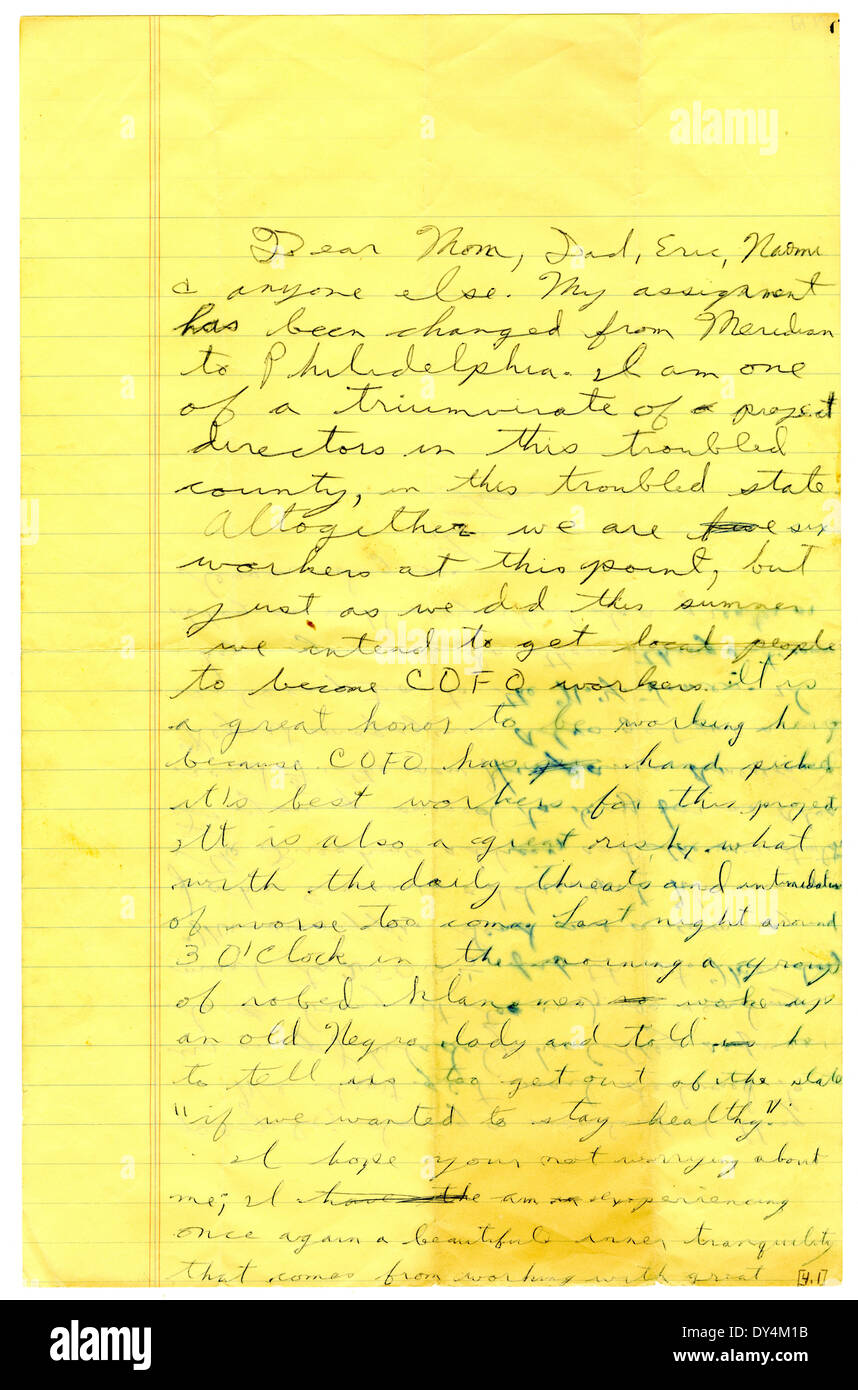 Dear Mom, Dad, Eric, Naomi
& anyone else. My assignment
has been changed from Meridian
to Philidelphia. I am one
of a triumvirate of project
directors in this troubled
county, in this troubled state
Altogether we are six
workers at this point, but
just as we did this summer
we intend to get local people
to become COFO workers. It is
a great honor to be working here
because COFO has hand picked
it's best workers for this project
It is also a great risk, what
with the daily threats and intimidation
of worse too come. Last night around
3 O'Clock in the morning a group
of robed klansmen woke up
an old Negro lady and told her
to tell us too get out of the state
"if we wanted to stay healthy".
I hope your not worrying about
me; I am experiencing
once again a beautiful inner tranquility
that comes from working with great
[4.1]
alamy
alamy
alamy
a
a
alamy stock photo
DY4M1B
www.alamy.com